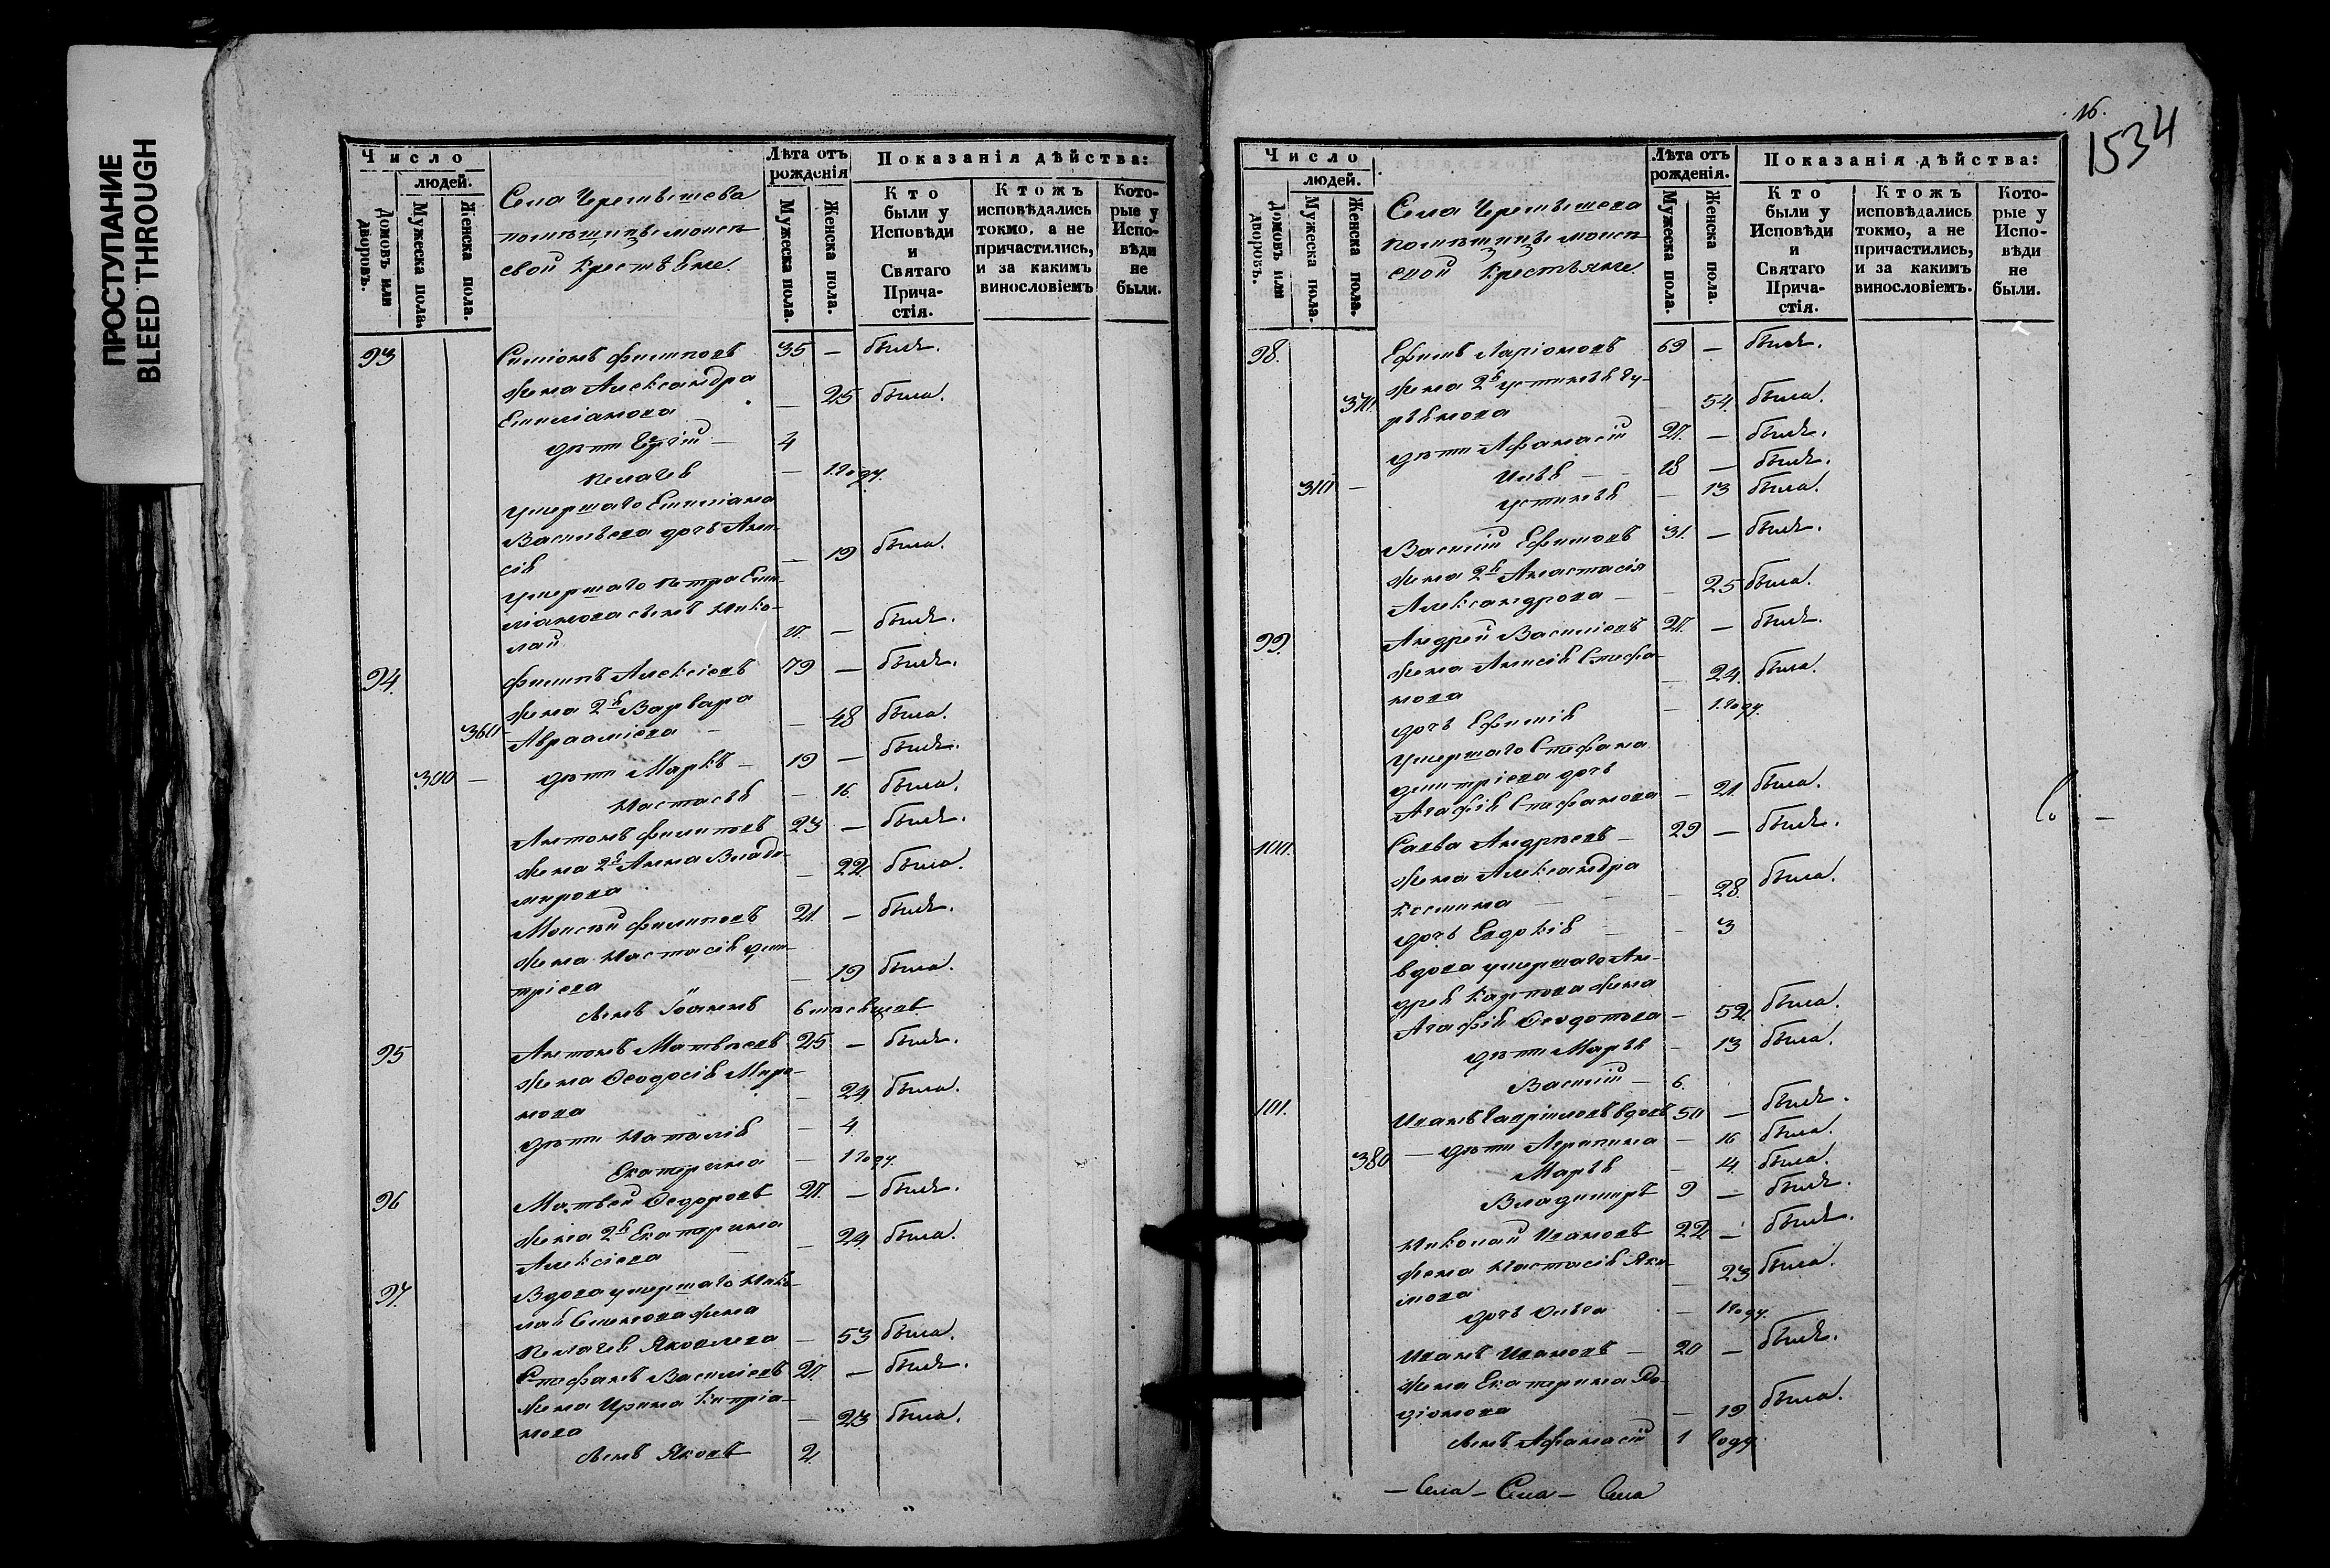 ПРОСТУПАНИЕ
BLEED THROUGH
Число
людей.
Домовъ или дворовъ.
Мужеска пола.
Женска пола.
Села
помѣщицы
Лѣта отъ рожденія
Мужеска пола.
Женска пола.
Показанія дѣйства:
Кто были у Исповѣди и Святаго Причастія.
Ктожъ исповѣдались токмо, а не причастились, и за какимъ винословіемъ
Которые у Исповѣди не были.
93 Филиповъ 35 — былъ.
жена Александра
Емиліанова — 25 была.
дѣти 4
— 1 году.
умершаго Емиліана
Васильева дочь Ани-
сія — 19 была.
умершаго Петра Еми-
ліанова сынъ Нико-
лай — былъ.
94. Филипъ Алексіевъ 79 — былъ.
жена 2я Варвара
Авраамiева — 48 была.
дѣти Маркъ — 19 — былъ.
Настасья — 16. была.
Антонъ Филиповъ 23 — былъ.
жена 2я Анна Влади-
мирова — 22. была.
Моисей Филиповъ 21. — былъ.
жена Настасія Дми-
тріева — 19 была.
сынъ Іоаннъ 6
95 Антонъ Матвѣевъ 25 — былъ.
жена Ѳеодосія Миро-
нова — 24 была.
дѣти Наталія — 4.
Екатерина — 1 году.
96 Матвей Ѳедоровъ — былъ.
жена 2я Екатерина
Алексіева — 24. была.
97. Вдова умершаго Нико-
лая Семенова жена
Пелагея Яковлева — 53 была.
Стефанъ Василіевъ — былъ.
жена Ирина Кипріа-
нова — 23 была.
сынъ Яковъ 2.
16.
1534
Число
людей.
Домовъ или дворовъ.
Мужеска пола.
Женска пола.
Села
помѣщицы
крестьяне
Лѣта отъ рожденія.
Мужеска пола.
Женска пола.
Показанія дѣйства:
Кто были у Исповѣди и Святаго Причастія.
Ктожъ исповѣдались токмо, а не причастились, и за какимъ винословіемъ.
Которые у Исповѣди не были.
98. Ефимъ Ларіоновъ 69 — былъ.
жена 2я Устинья Гу-
рьянова — 54. была.
дѣти Афанасій — былъ.
Илья — 18 — былъ.
Устинья — 13 была.
Василій Ефимовъ 31. — былъ.
жена 2я Анастасія
Александрова — 25 была.
99. Андрей Василіевъ — былъ.
жена Анисія Стефа-
нова — 24. была.
дочь Ефимія — 1 году.
умершаго Стефана
Дмитріева дочь
Агафія Стефанова — 21. была.
100. Савва Андреевъ — 29 — былъ.
жена Александра
Космина — 28. была.
дочь Евдокія — 3
вдова умершаго Ан-
дрея Карпова жена
Агафія Ѳеодотова — 52. была.
дѣти Марья — 13 была.
Василій — 6.
101. Иванъ Гавріиловъ вдовъ 50 — былъ.
380 — дѣти Агрипина — 16 была.
Марья — 4. была.
Владимиръ 9 — былъ.
Николай Ивановъ 22 — былъ.
жена Настасія Яки-
мова — 23 была.
дочь Ольга — 1 году.
Иванъ Ивановъ — 20 — былъ.
жена Екатерина Ро-
діонова — 19 была.
сынъ Афанасій 1 году.
— Села — Села — Села